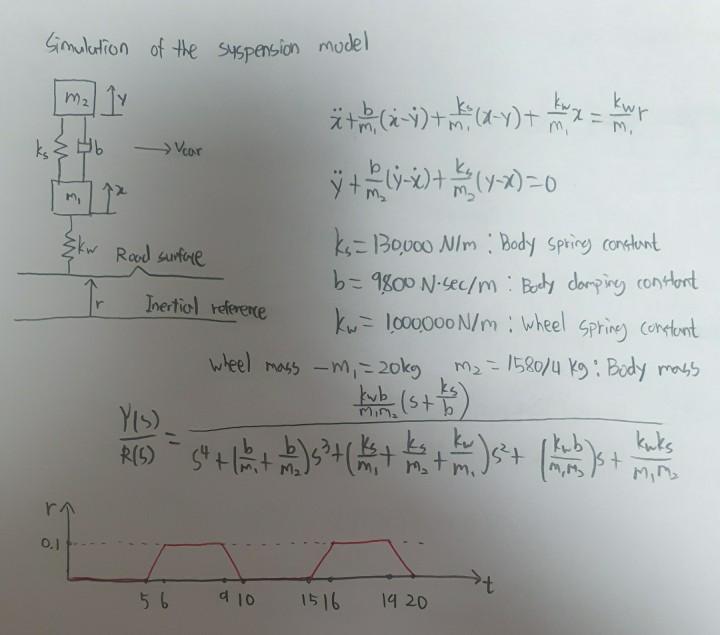 Simulation of the syspension model
m₂ ↑y
kₛ b → Vcar
m₁ ↑x
kw Road surface
r Inertial reference
ẍ + b/m₁(ẋ-ẏ) + kₛ/m₁(x-y) + kw/m₁ x = kw/m₁ r
ÿ + b/m₂(ẏ-ẋ) + kₛ/m₂(y-x) = 0
kₛ = 130,000 N/m : Body spring constant
b = 9,800 N·sec/m : Body damping constant
kw = 1,000,000 N/m : Wheel spring constant
Wheel mass - m₁ = 20kg m₂ = 1580/4 kg : Body mass
Y(s)/R(s) = (kwb/m₁m₂ (s + kₛ/b)) / (s⁴ + (b/m₁ + b/m₂)s³ + (kₛ/m₁ + kₛ/m₂ + kw/m₁)s² + (kwb/m₁m₂)s + kwkₛ/m₁m₂)
r
0.1
t
5 6 9 10 15 16 19 20